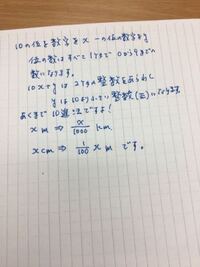 10の位を数字をx 一の位の数字をy
位の数はすべて1ケタで0から9までの
数になります。
10x+yは2ケタの整数をあらわし
yは10より小さい整数(正)になります
あくまで10進法ですよ!
x m ⇒ x/1000 km
x cm ⇒ 1/100 x m です。